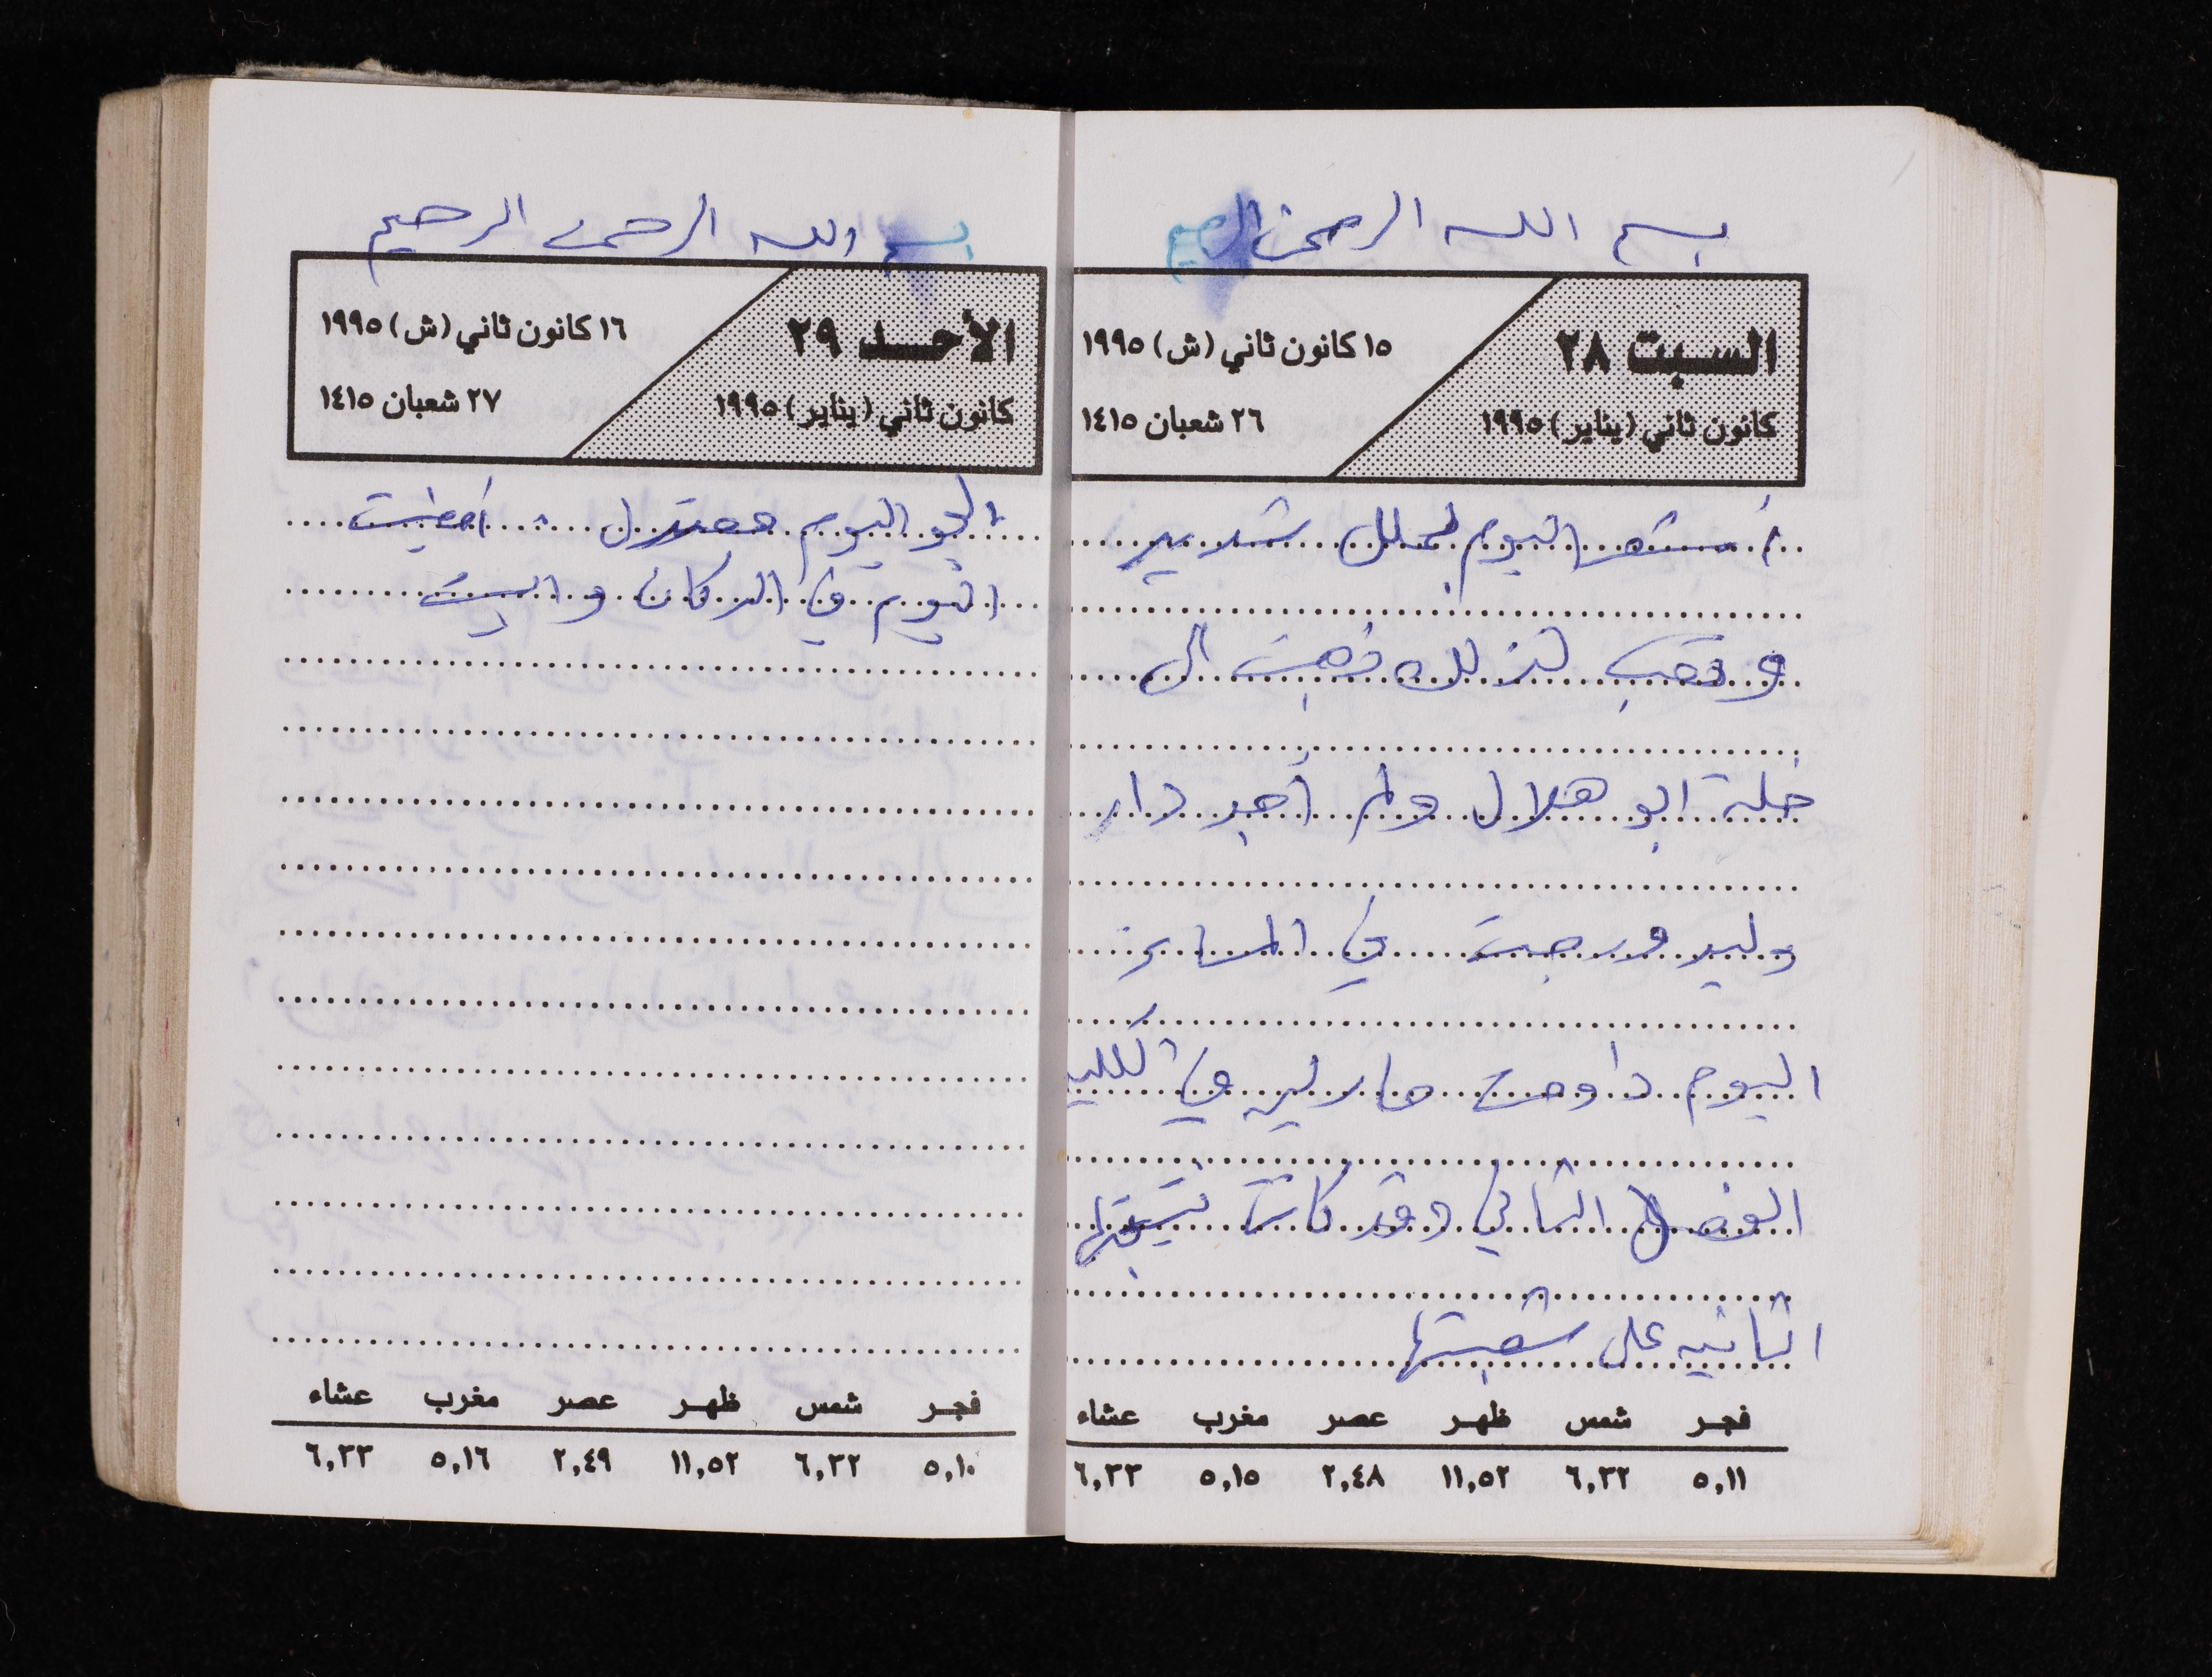 بسم الله الرحمن الرحيم
السبت ٢٨
كانون ثاني (يناير) ١٩٩٥
١٥ كانون ثاني (ش) ١٩٩٥
٢٦ شعبان ١٤١٥
أشعر اليوم بملل شديد
وتعب لذلك ذهبت الى
خلة ابو هلال ولم أجد دار
وليد ورجعت في المساء
اليوم داومت في الكلية
الفصل الثاني وقد كانت نتيجتها
الثانيه على شعبتها
فجر شمس ظهر عصر مغرب عشاء
٥,١١ ٦,٣٢ ١١,٥٢ ٢,٤٨ ٥,١٥ ٦,٣٣
بسم الله الرحمن الرحيم
الأحد ٢٩
كانون ثاني (يناير) ١٩٩٥
١٦ كانون ثاني (ش) ١٩٩٥
٢٧ شعبان ١٤١٥
الجو اليوم معتدل . أمضيت
اليوم في الدكان والبيت
فجر شمس ظهر عصر مغرب عشاء
٥,١٠ ٦,٣٢ ١١,٥٢ ٢,٤٩ ٥,١٦ ٦,٣٣